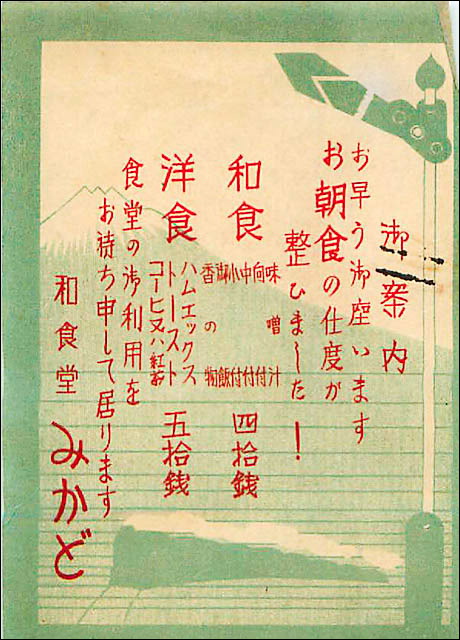 御案内
お早う御座います
お朝食の仕度が
整ひました！
和食
味噌汁
向付
中付
小付
御飯
香の物
四拾銭
洋食
ハムエックス
トースト
コーヒ又ハ紅茶
五拾銭
食堂の御利用を
お待ち申して居ります
和食堂 みかど